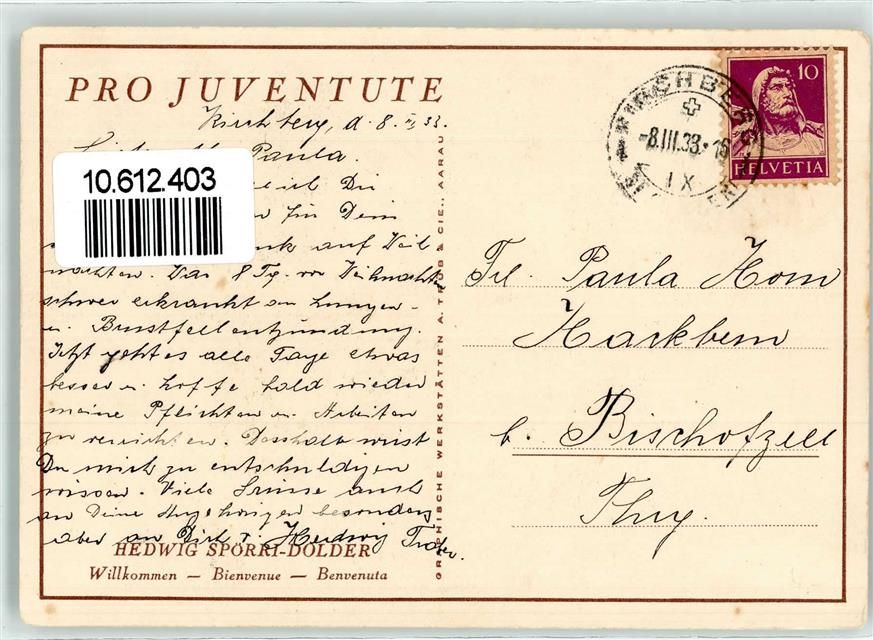 PRO JUVENTUTE
Kirchberg, d. 8. III. 33.
Paula.
10.612.403
Dir
für Dein
auf Weih
nachten. War 8 Tg. vor Weihnachten
schwer erkrankt an Lungen-
u. Brustfellentzündung.
Jetzt geht es alle Tage etwas
besser u. hoffe bald wieder
meine Pflichten u. Arbeiten
zu verrichten. Desshalb wirst
Du mich zu entschuldigen
wissen. Viele Grüsse auch
an Deine Angehörigen besonders
aber an Dich v. Hedwig
HEDWIG SPÖRRI-DOLDER
Willkommen — Bienvenue — Benvenuta
GRAPHISCHE WERKSTÄTTEN A. TRÜB & CIE., AARAU
KIRCHBERG
-8.III.33.-16
IX
10
HELVETIA
Frl. Paula Horn
b. Bischofzell
Thrg.